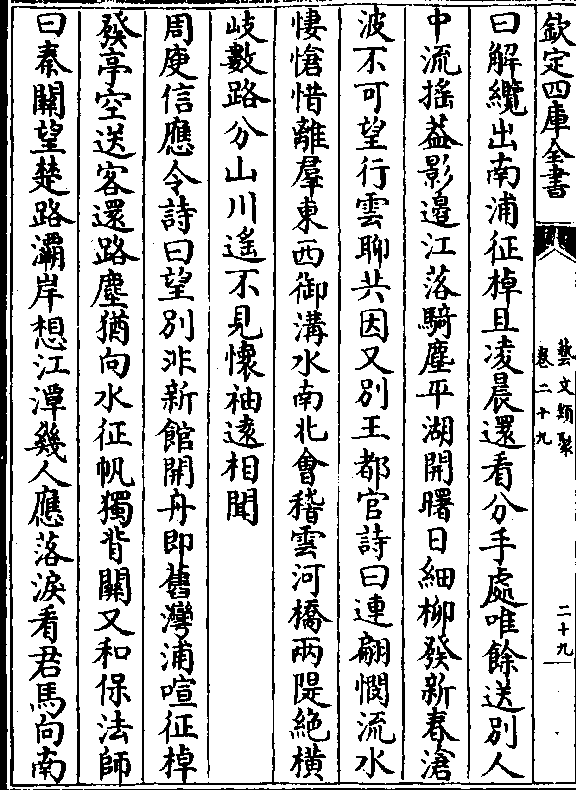 欽定四庫全書
藝文類聚
卷二十九
二十九
曰解纜出南浦征棹且凌晨還看分手處唯餘送別人
中流搖葢影邉江落騎塵平湖開曙日細柳發新春滄
波不可望行雲聊共因又別王都官詩曰連翩憫流水
悽愴惜離羣東西御溝水南北㑹稽雲河橋兩隄絶横
岐數路分山川遙不見懷袖逺相聞
周庾信應令詩曰望別非新館開舟即舊灣浦喧征棹
發亭空送客還路塵猶向水征帆獨背關又和保法師
曰秦關望楚路灞岸想江潭幾人應落淚看君馬向南